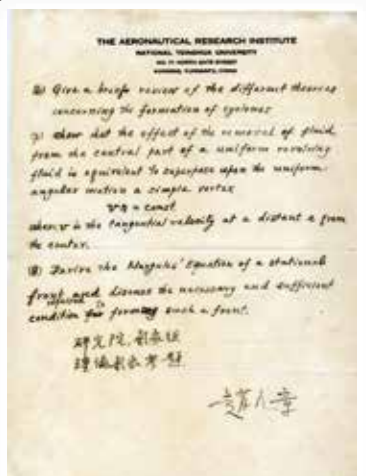 THE AERONAUTICAL RESEARCH INSTITUTE
NATIONAL TSINGHUA UNIVERSITY
NO. 11 NORTH GATE STREET
KUNMING, YUNNANFU, CHINA
Give a brief review of the different theories
concerning the formation of cyclones
show that the effect of the removal of fluid
from the central part of a uniform revolving
fluid is equivalent to superpose upon the uniform
angular motion a simple vortex
= const
where v is the tangential velocity at a distant from
the center.
Derive the Margules' Equation of a stational
front and discuss the necessary and sufficient
condition for such a front.
研究院